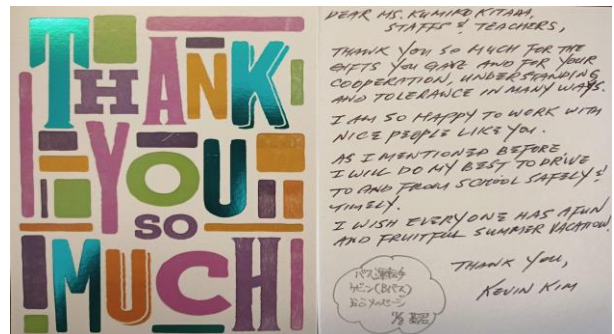 THANK
YOU
SO
MUCH
DEAR MS. KUMIKO KITADA,
STAFFS & TEACHERS,
THANK YOU SO MUCH FOR THE
GIFTS YOU GAVE AND FOR YOUR
COOPERATION, UNDERSTANDING
AND TOLERANCE IN MANY WAYS.
I AM SO HAPPY TO WORK WITH
NICE PEOPLE LIKE YOU.
AS I MENTIONED BEFORE
I WILL DO MY BEST TO DRIVE
TO AND FROM SCHOOL SAFELY &
TIMELY.
I WISH EVERYONE HAS A FUN
AND FRUITFUL SUMMER VACATION.
THANK YOU,
KEVIN KIM
バス運転手
ケビン(Bバス)
メッセージ